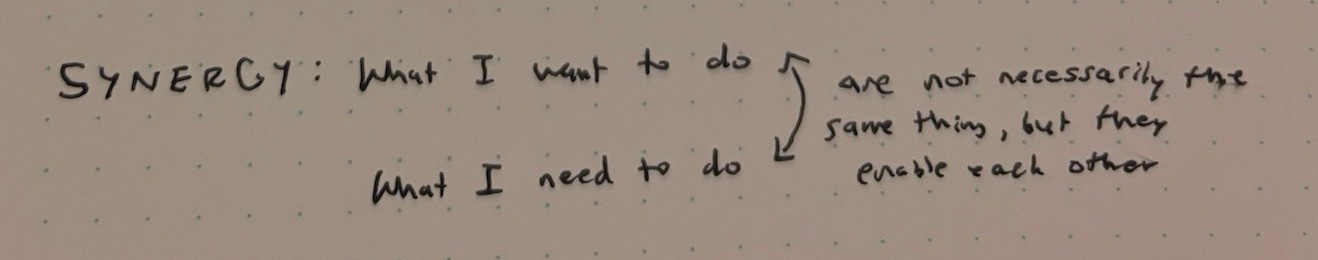 SYNERGY: What I want to do
are not necessarily the
same thing, but they
enable each other
What I need to do